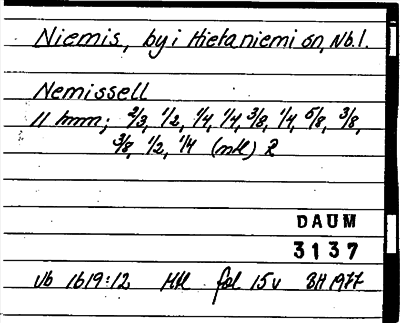 Niemis, by i Hietaniemi sn, Nb.l.
Nemissell
11 hmm; 2/3, 1/2, 1/4, 1/4, 3/8, 1/4, 5/8, 3/8,
3/8, 1/2, 1/4 (mtl) 2
DAUM
3137
Vb 1619:12 Hkl fol 15v BH 1977